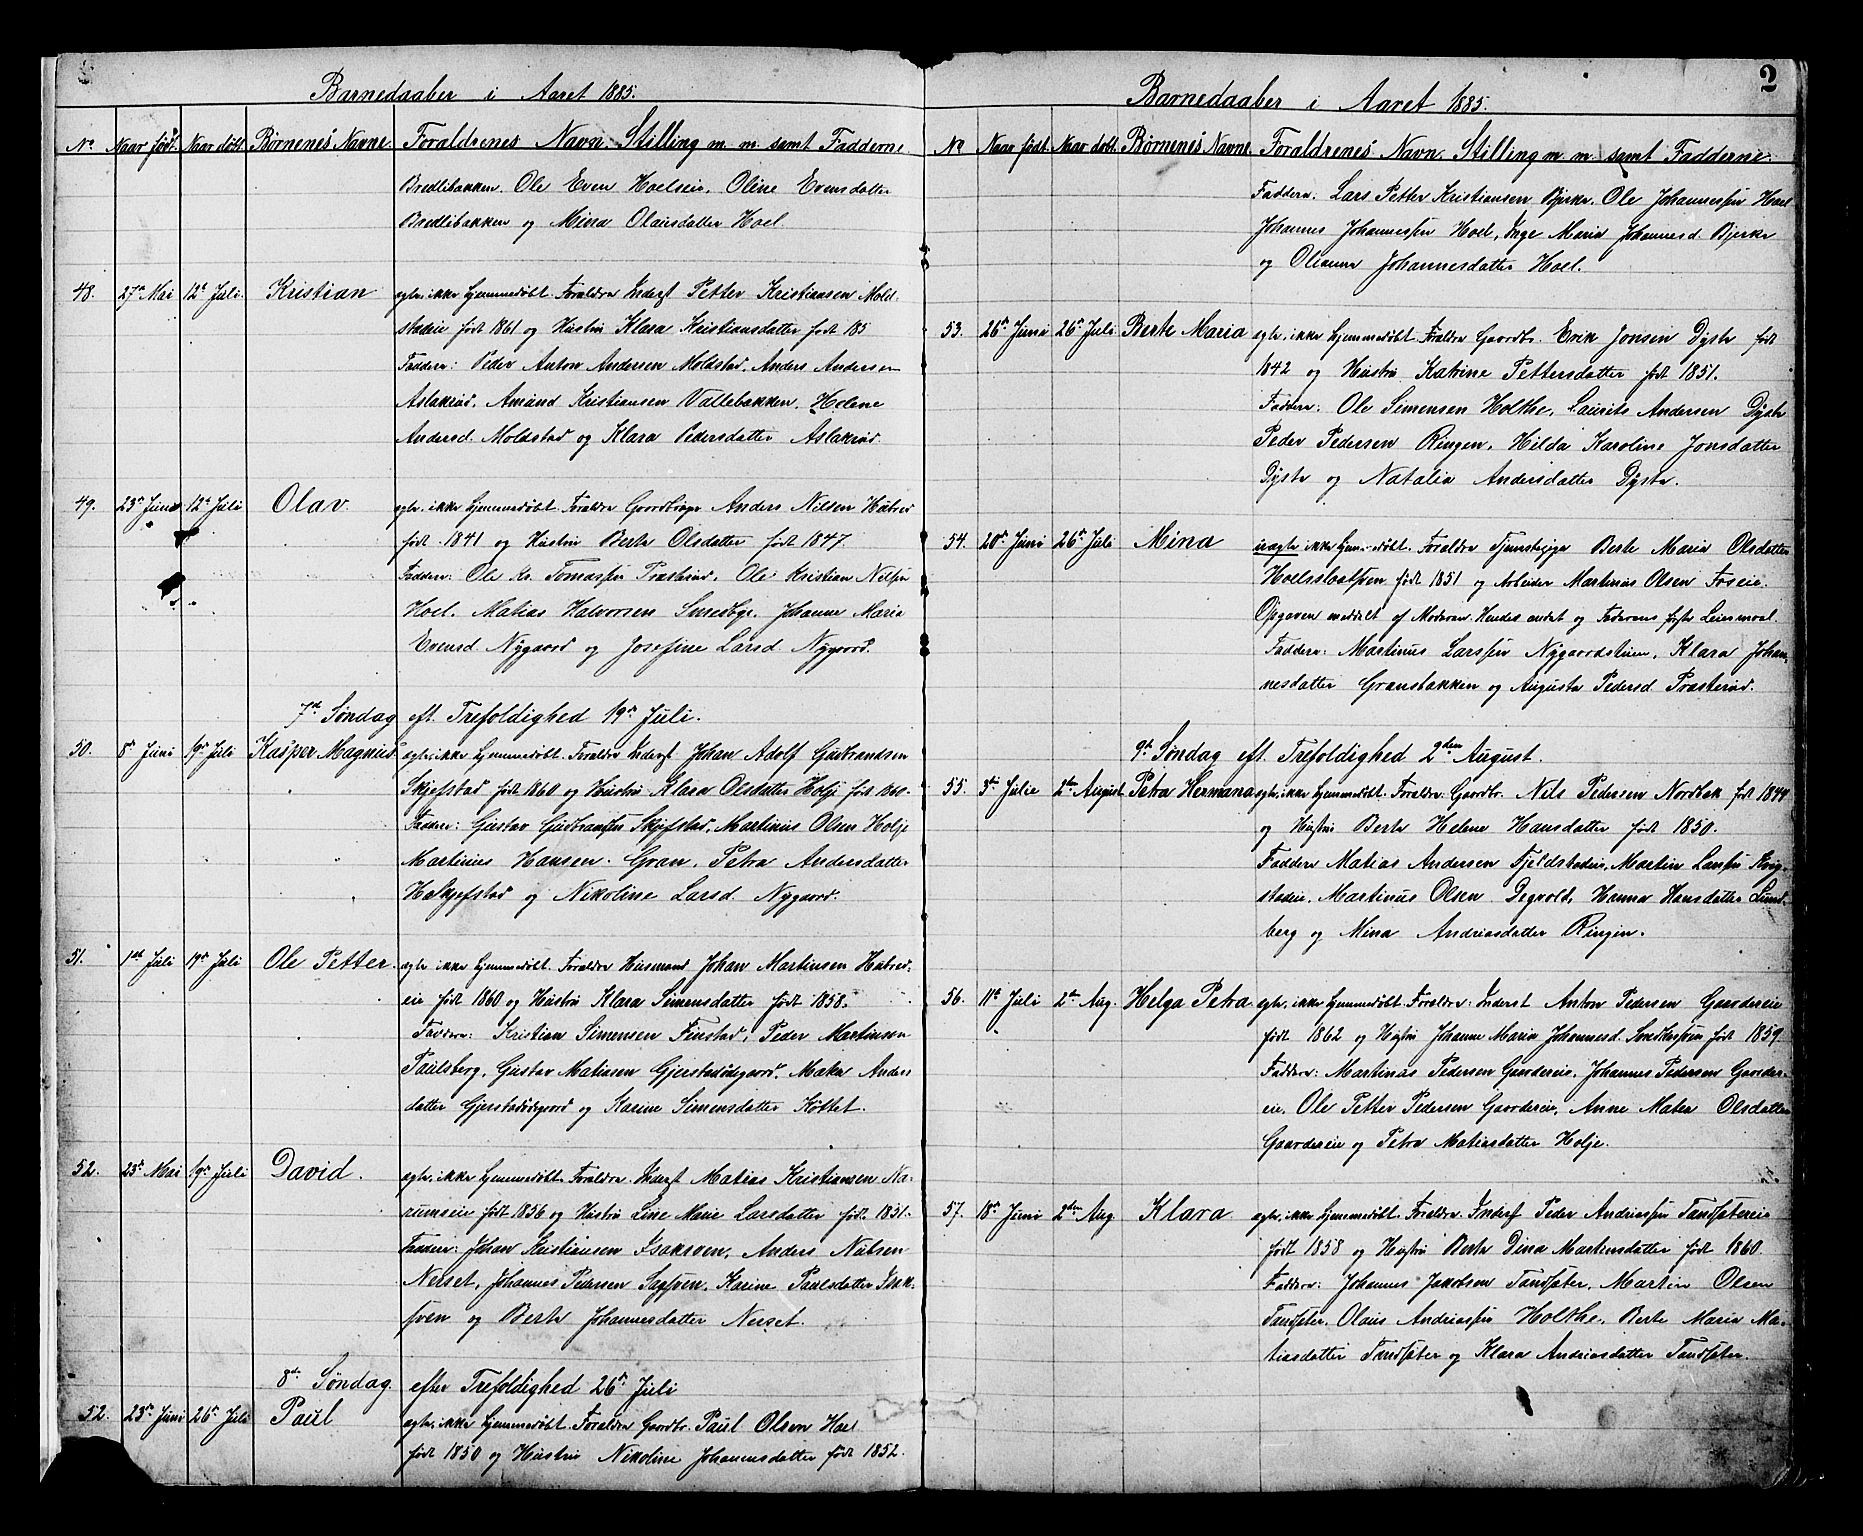 Barnedaaber i Aaret 1885.
No. Naar født. Naar døbt. Børnenes Navne. Foraldrenes Navn Stilling m m samt Fadderne
Bredlibakken, Ole Even Hoelseie, Oline Evensdatter
Bredlibakken og Mina Olausdatter Hoel.
48. 27de Mai 12te Juli. Kristian ægte, ikke hjemmedøbt. Foraldre Inderst Petter Kristiansen Mold-
stadeie født 1861 og Hustru Klara Kristiansdatter født 185
Faddere: Peder Anton Andersen Moldstad, Anders Andersen
Aslakrud, Amund Kristiansen Vallebakken, Helene
Andersd. Moldstad og Klara Pedersdatter Aslakrud.
49. 23de Juni 12te Juli Olav. ægte, ikke hjemmedøbt. Foraldre Gaardbruger Anders Nilsen
født 1841 og Hustru Berte Olsdatter født 1847.
Faddere: Ole Kr. Tomassen Præsterud, Ole Kristian Nilsen
Hoel, Matias Halvorsen Smedbye, Johanne Maria
Evensd. Nygaard og Josefine Larsd. Nygaard.
7de Søndag eft. Trefoldighed 19de Juli.
50. 8de Juni 19de Juli Kasper Magnus ægte, ikke hjemmedøbt. Foraldre Inderst Johan Adolf Gudbrandsen
Skjefstad født 1860 og Hustru Klara Olsdatter Holje født
Faddere: Gustav Gudbrandsen Skjefstad, Martinus Olsen Holje
Martinius Hansen Gran, Petra Andersdatter
Skjefstad og Nikoline Larsd. Nygaard.
51. 1ste Juli 19de Juli Ole Petter. ægte, ikke hjemmedøbt. Foraldre Husmand Johan Martinsen
eie født 1860 og Hustru Klara Simensdatter født 1858.
Faddere: Kristian Simensen Finstad, Peder Martinsen
Paulsberg, Gustav Matiasen Gjerstadødegaard, Matea Anders
datter Gjerstadødegaard og Karine Simensdatter Kottet.
52. 25de Mai 19de Juli David. ægte, ikke hjemmedøbt. Foraldre Inderst Matias Kristiansen Na-
rumseie født 1856 og Hustru Line Marie Larsdatter født 1851.
Faddere: Johan Kristiansen Isaksveen, Anders Nilsen
Nerset, Johannes Pedersen Karine Paulsdatter Isak-
sveen og Berte Johannesdatter Nerset.
8de Søndag efter Trefoldighed 26de Juli
52. 23de Juni 26de Juli Paul ægte, ikke hjemmedøbt. Foraldre Gaardbr. Paul Olsen Hoel
født 1850 og Hustru Nikoline Johannesdatter født 1852.
2
Barnedaaber i Aaret 1885.
No Naar født Naar døbt. Børnenes Navne. Foraldrenes Navn. Stilling m m samt Fadderne.
Faddere: Lars Petter Kristiansen Bjerke, Ole Johannessen Hoel
Johannes Johannessen Hoel, Inge Maria Johannesd. Bjerke
og Olianne Johannesdatter Hoel.
53. 26de Juni 26de Juli Berte Maria ægte, ikke hjemmedøbt. Foraldre Gaardbr. Erik Jonsen Dyste født
1842 og Hustru Katrine Pettersdatter født 1851.
Faddere: Ole Simensen Holthe, Laurits Andersen Dyste
Peder Pedersen Ringen, Hilda Karoline Jonsdatter
Dyste og Natalia Andersdatter Dyste.
54. 20de Juni 26de Juli Mina uægte ikke hjemmedøbt. Foraldre Tjenestepige Berte Maria Olsdatter
født 1851 og Arbeider Martinius Olsen Foseie.
Opgaven meddelt af Moderen. Hendes andet og Faderens første Leiermaal.
Faddere: Martinus Larssen Nygaardstuen, Klara Johan-
nesdatter Gransbakken og Augusta Pedersd. Præsterud.
9de Søndag eft. Trefoldighed 2den August.
55. 3de Julie 2den August Petra Hermana ægte, ikke hjemmedøbt. Foraldre Gaardbr. Nils Pedersen Nordbak født 1844
og Hustru Berte Helene Hansdatter født 1850.
Faddere Matias Andersen Fjeldstadeie, Martin Larssen
stadeie, Martinus Olsen Degvold, Hanna Hansdatter Lund-
berg og Mina Andriasdatter Ringen.
56. 11te Juli 2den Aug. Helga Petra. ægte, ikke hjemmedøbt. Foraldre: Inderst Anton Pedersen Gaardereie
født 1862 og Hustru Johanne Maria Johannesd. født 1859.
Faddere: Martinus Pedersen Gaardereie, Johannes Pedersen Gaarder-
eie, Ole Petter Pedersen Gaardereie, Anne Matea Olsdatter
Gaardereie og Petra Matiasdatter Holje.
57. 18de Juni 2den Aug Klara ægte, ikke hjemmedøbt. Foraldre Inderst Peder Andriassen Tandsetereie
født 1858 og Hustru Berte Dina Martinsdatter født 1860.
Faddere: Johannes Jakobsen Tandseter, Martin Olsen
Tandseter, Olaus Andriassen Holthe, Berte Maria Ma-
tiasdatter Tandseter og Klara Andriasdatter Tandseter.